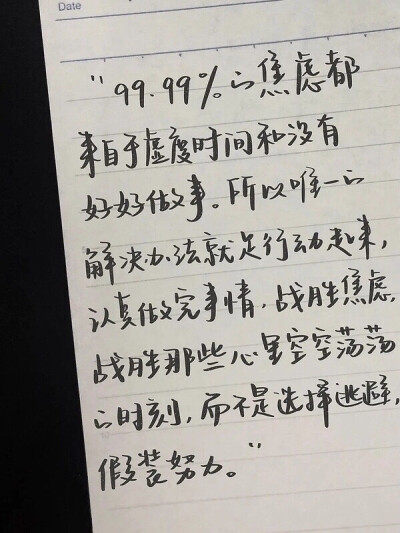 Date
"99.99%的焦虑都
来自于虚度时间和没有
好好做事。所以唯一的
解决办法就是行动起来,
认真做完事情,战胜焦虑,
战胜那些心里空空荡荡
的时刻,而不是选择逃避,
假装努力。"